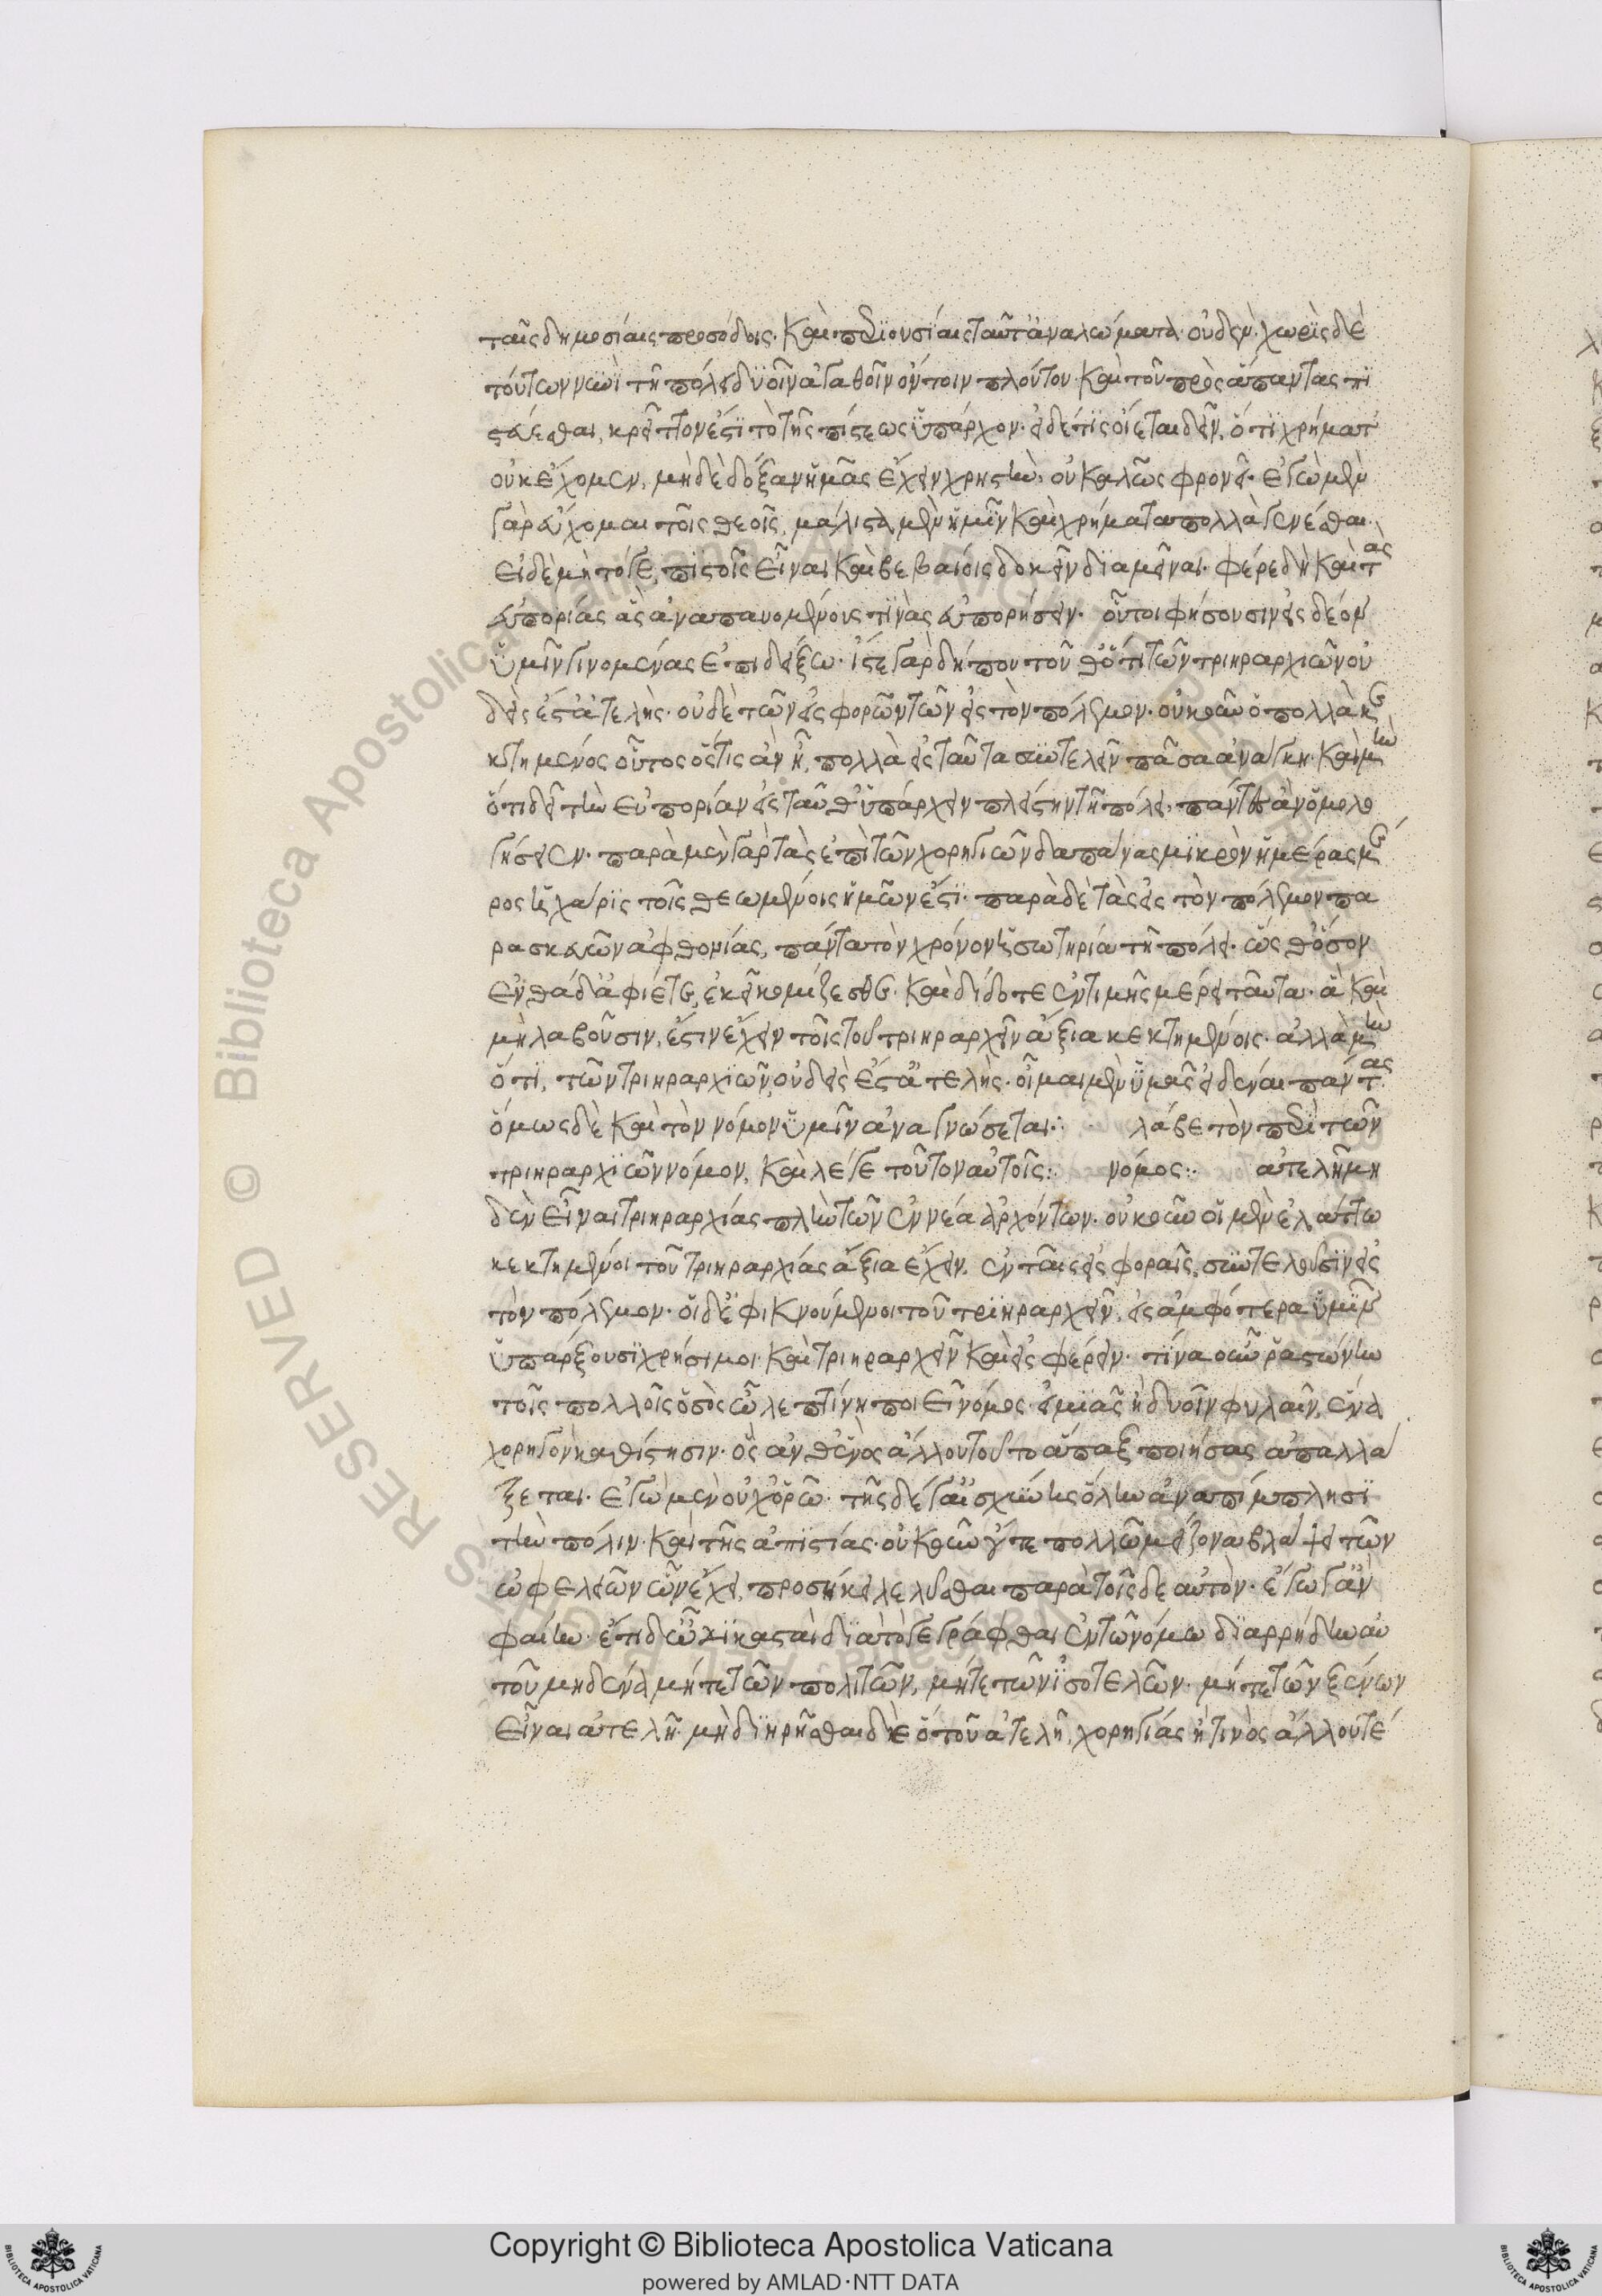 ταῖς δημοσίαις προσόδοις. καὶ περιουσίαις ταῦτ' ἀναλώματα οὐδέν. χωρὶς δὲ
τούτων νυνὶ τῇ πόλει δυοῖν ἀγαθοῖν ὄντοιν πλούτου καὶ τοῦ πρὸς ἅπαντας πι
στεύεσθαι, κρεῖττον ἐστὶ τὸ τῆς πίστεως ὑπάρχον. εἰ δέ τις οἴεται δεῖν, ὅτι χρήματ'
οὐκ ἔχομεν, μηδὲ δόξαν ἡμᾶς ἔχειν χρηστὴν, οὐ καλῶς φρονεῖ. ἐγὼ μὲν
γὰρ εὔχομαι τοῖς θεοῖς, μάλιστα μὲν ἡμῖν καὶ χρήματα πολλὰ γενέσθαι.
εἰ δὲ μὴ τόγε, πιστοῖς εἶναι καὶ βεβαίοις δοκεῖν διαμεῖναι. φέρε δὴ καὶ τὰς
εὐπορίας ἃς ἀναπαυομένους τινὰς εὐπορήσειν. οὗτοι φήσουσιν εἰς δέον
ὑμῖν γινομένας ἐπιδείξω. ἴστε γὰρ δήπου τοῦθ' ὅτι τῶν τριηραρχιῶν οὐ
δείς ἐστ' ἀτελὴς. οὐδὲ τῶν εἰσφορῶν τῶν εἰς τὸν πόλεμον. οὐκοῦν ὁ πολλὰ κε
κτημένος οὗτος ὅστις ἂν ᾖ, πολλὰ εἰς ταῦτα συντελεῖν πᾶσα ἀνάγκη. καὶ μὴν
ὅτι δεῖ τὴν εὐπορίαν εἰς ταῦθ' ὑπάρχειν πλείστην τῇ πόλει, πάντες ἂν ὁμολο
γήσειεν. παρὰ μὲν γὰρ τὰς ἐπὶ τῶν χορηγιῶν δαπάνας μικρὸν ἡμέρας μέ
ρος ἡ χάρις τοῖς θεωμένοις ἡμῶν ἐστι. παρὰ δὲ τὰς εἰς τὸν πόλεμον πα
ρασκευῶν ἀφθονίας, πάντα τὸν χρόνον ἡ σωτηρία τῇ πόλει. ὥσθ' ὅσον
ἐνθάδ' ἀφίετε, ἐκεῖ κομίζεσθε. καὶ δίδοτε ἐν τιμῆς μέρει ταῦτα. ἃ καὶ
μὴ λαβοῦσιν, ἔστιν ἔχειν τοῖς τοῦ τριηραρχεῖν ἄξια κεκτημένοις. ἀλλὰ μὴν
ὅτι, τῶν τριηραρχιῶν, οὐδείς ἐστ' ἀτελὴς. οἶμαι μὲν ὑμᾶς εἰδέναι πάντας
ὅμως δὲ καὶ τὸν νόμον ὑμῖν ἀναγνώσεται: λάβε τὸν περὶ τῶν
τριηραρχιῶν νόμον, καὶ λέγε τοῦτον αὐτοῖς: νόμος: ἀτελῆ μη
δὲν εἶναι τριηραρχίας πλὴν τῶν ἐννέα ἀρχόντων. οὐκοῦν οἱ μὲν ἐλάττω
κεκτημένοι τοῦ τριηραρχίας ἄξια ἔχειν, ἐν ταῖς εἰσφοραῖς, συντελοῦσιν εἰς
τὸν πόλεμον. οἱ δ' ἐφικνούμενοι τοῦ τριηραρχεῖν, εἰς ἀμφότερα ὑμῖν
ὑπάρξουσι χρήσιμοι καὶ τριηραρχεῖν καὶ εἰσφέρειν. τίνα οὖν ῥαστώνην
τοῖς πολλοῖς ὁ σὸς ὦ λεπτίνη ποιεῖ νόμος. εἰ μιᾶς ἢ δυοῖν φυλαῖν, ἕνα
χορηγὸν καθίστησιν. ὃς ἀνθ' ἑνὸς ἄλλου τοῦτο ἅπαξ ποιήσας ἀπαλλά
ξεται. ἐγὼ μὲν οὐχ' ὁρῶ. τῆς δέ γ' αἰσχύνης ὅλην ἀναπίμπλησι
τὴν πόλιν. καὶ τῆς ἀπιστίας. οὐκοῦν ὅτε πολλῶ μείζονα βλάψει τῶν
ὠφελειῶν ὧν ἔχει, προσήκει λελύσθαι παρὰ τοῖσδε αὐτὸν. ἔγωγ' ἂν
φαίην. ἔτι δ' ὦ ἄνδρες δικασταὶ διὰ τὸ γεγράφθαι ἐν τῶ νόμω διαρρήδην αὐ
τοῦ μηδένα μήτε τῶν πολιτῶν, μήτε τῶν ἰσοτελῶν. μήτε τῶν ξένων
εἶναι ἀτελῆ. μὴ διηρῆσθαι δὲ ὅτου ἀτελῆ, χορηγίας ἤ τινος ἄλλου τέ
Copyright © Biblioteca Apostolica Vaticana
powered by AMLAD·NTT DATA